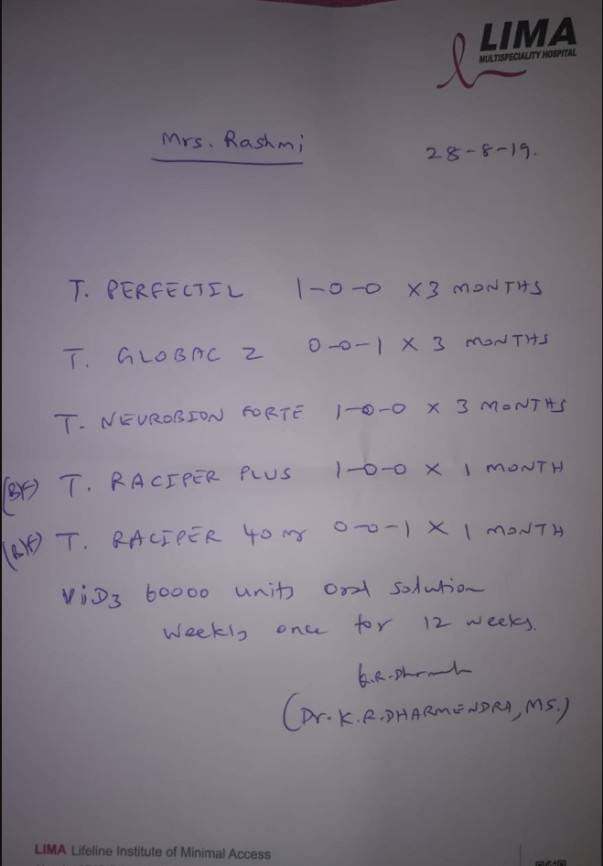 LIMA
MULTISPECIALITY HOSPITAL
Mrs. Rashmi
28-8-19.
T. PERFECTIL 1-0-0 x 3 MONTHS
T. GLOBAC Z 0-0-1 X 3 MONTHS
T. NEUROBION FORTE 1-0-0 x 3 MONTHS
(B/F) T. RACIPER PLUS 1-0-0 x 1 MONTH
(B/F) T. RACIPER 40 mg 0-0-1 X 1 MONTH
ViD3 60000 units oral solution
weekly once for 12 weeks.
(Dr. K.R. DHARMENDRA, MS.)
LIMA Lifeline Institute of Minimal Access